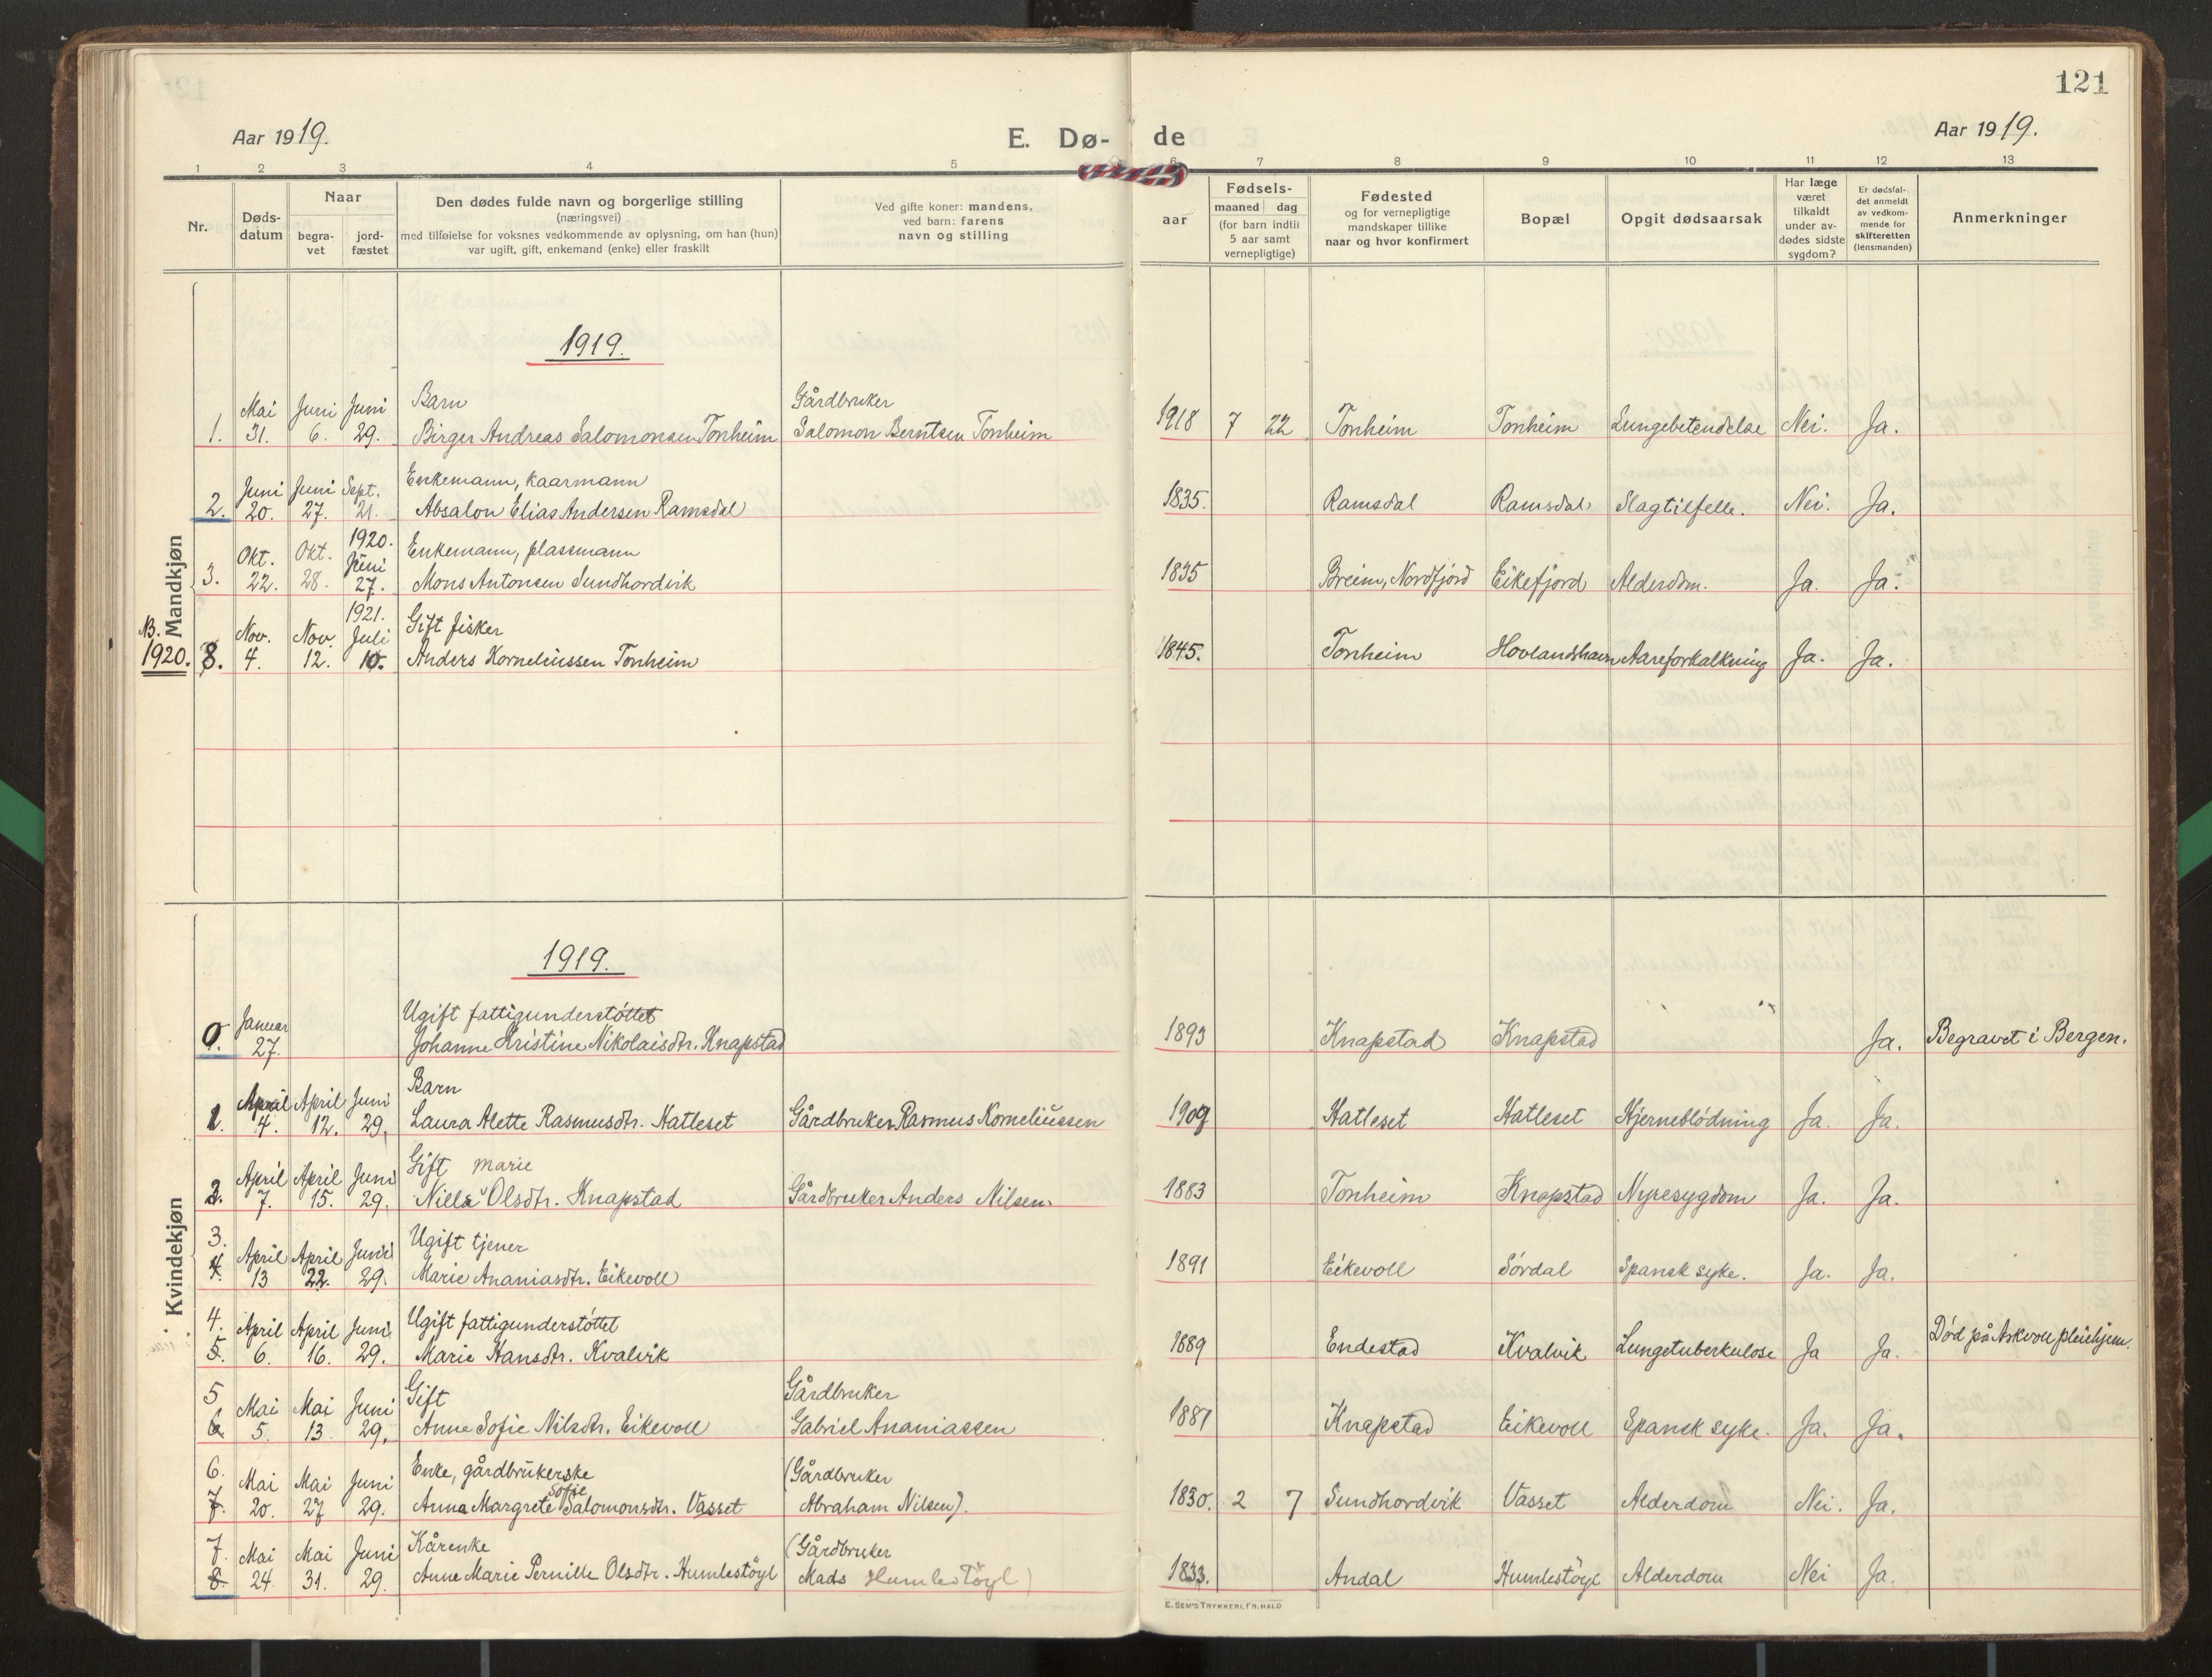 121
Aar 1919. E. Dø- de Aar 1919.
1 2 3 4 5 6 7 8 9 10 11 12 13
Nr.
Døds-
datum
Naar
begra-
vet
jord-
fæstet
Den dødes fulde navn og borgerlige stilling
(næringsvei)
med tilføielse for voksnes vedkommende av oplysning, om han (hun)
var ugift, gift, enkemand (enke) eller fraskilt
Ved gifte koner: mandens,
ved barn: farens
navn og stilling
aar
Fødsels-
maaned dag
(for barn indtil
5 aar samt
vernepligtige)
Fødested
og for vernepligtige
mandskaper tillike
naar og hvor konfirmert
Bopæl
Opgit dødsaarsak
Har læge
været
tilkaldt
under av-
dødes sidste
sygdom?
Er dødsfal-
det anmeldt
av vedkom-
mende for
skifteretten
(lensmanden)
Anmerkninger
Mandkjøn
1919.
Mai Juni Juni Barn Gårdbruker
1. 31. 6. 29. Birger Andreas Salomonsen Tonheim Salomon Berntsen Tonheim 1918 7 22 Tonheim Tonheim Lungebetendelse Nei. Ja.
Juni Juni Sept. Enkemann, kaarmann
2. 20. 27. 21. Absalon Elias Andersen Ramsdal 1835. Ramsdal Ramsdal Slagtilfelle. Nei. Ja.
1920.
Okt. Okt. Juni Enkemann, plassmann
3. 22. 28. 27. Mons Antonsen Sundhordvik 1835 Breim, Nordfjord Eikefjord Alderdom. Ja. Ja.
1921.
NB. Nov. Nov. Juli Gift fisker
1920. 8. 4. 12. 10. Anders Korneliussen Tonheim 1845. Tonheim Hovlandshavn Aareforkalkning Ja. Ja.
Kvindekjøn
1919.
Januar Ugift fattigunderstøttet
0. 27. Johanne Kristine Nikolaisdtr. Knapstad 1893 Knapstad Knapstad Ja. Begravet i Bergen.
April April Juni Barn
1. 4. 12. 29. Laura Alette Rasmusdtr. Hatleset Gårdbruker Rasmus Korneliussen 1909 Hatleset Hatleset Hjerneblödning Ja. Ja.
April April Juni Gift Marie
2. 7. 15. 29. Nille Olsdtr. Knapstad Gårdbruker Anders Nilsen. 1883 Tonheim Knapstad Nyresygdom Ja. Ja.
3. April April Juni Ugift tjener
4. 13 22. 29. Marie Ananiasdtr. Eikevoll 1891 Eikevoll Sördal Spansk syke. Ja. Ja.
4. April April Juni Ugift fattigunderstöttet
5. 6. 16. 29. Marie Hansdtr. Kvalvik 1889 Endestad Kvalvik Lungetuberkulose Ja Ja. Död på Askvoll pleiehjem.
5 Mai Mai Juni Gift Gårdbruker
6. 5. 13. 29. Anne Sofie Nilsdtr. Eikevoll Gabriel Ananiassen 1887 Knapstad Eikevoll Spansk syke. Ja. Ja.
6. Mai Mai Juni Enke, gårdbrukerske (Gårdbruker
7. 20. 27 29. Anna Margrete Sofie Salomonsdtr. Vasset Abraham Nilsen). 1830. 2 7 Sundhordvik Vasset Alderdom Nei. Ja.
7. Mai Mai Juni Kårenke (Gårdbruker
8. 24. 31. 29. Anne Marie Pernille Olsdtr. Humlestöyl Mads Humlestöyl) 1833. Andal Humlestöyl Alderdom Nei Ja.
E. SEM'S TRYKKERI, FR.HALD